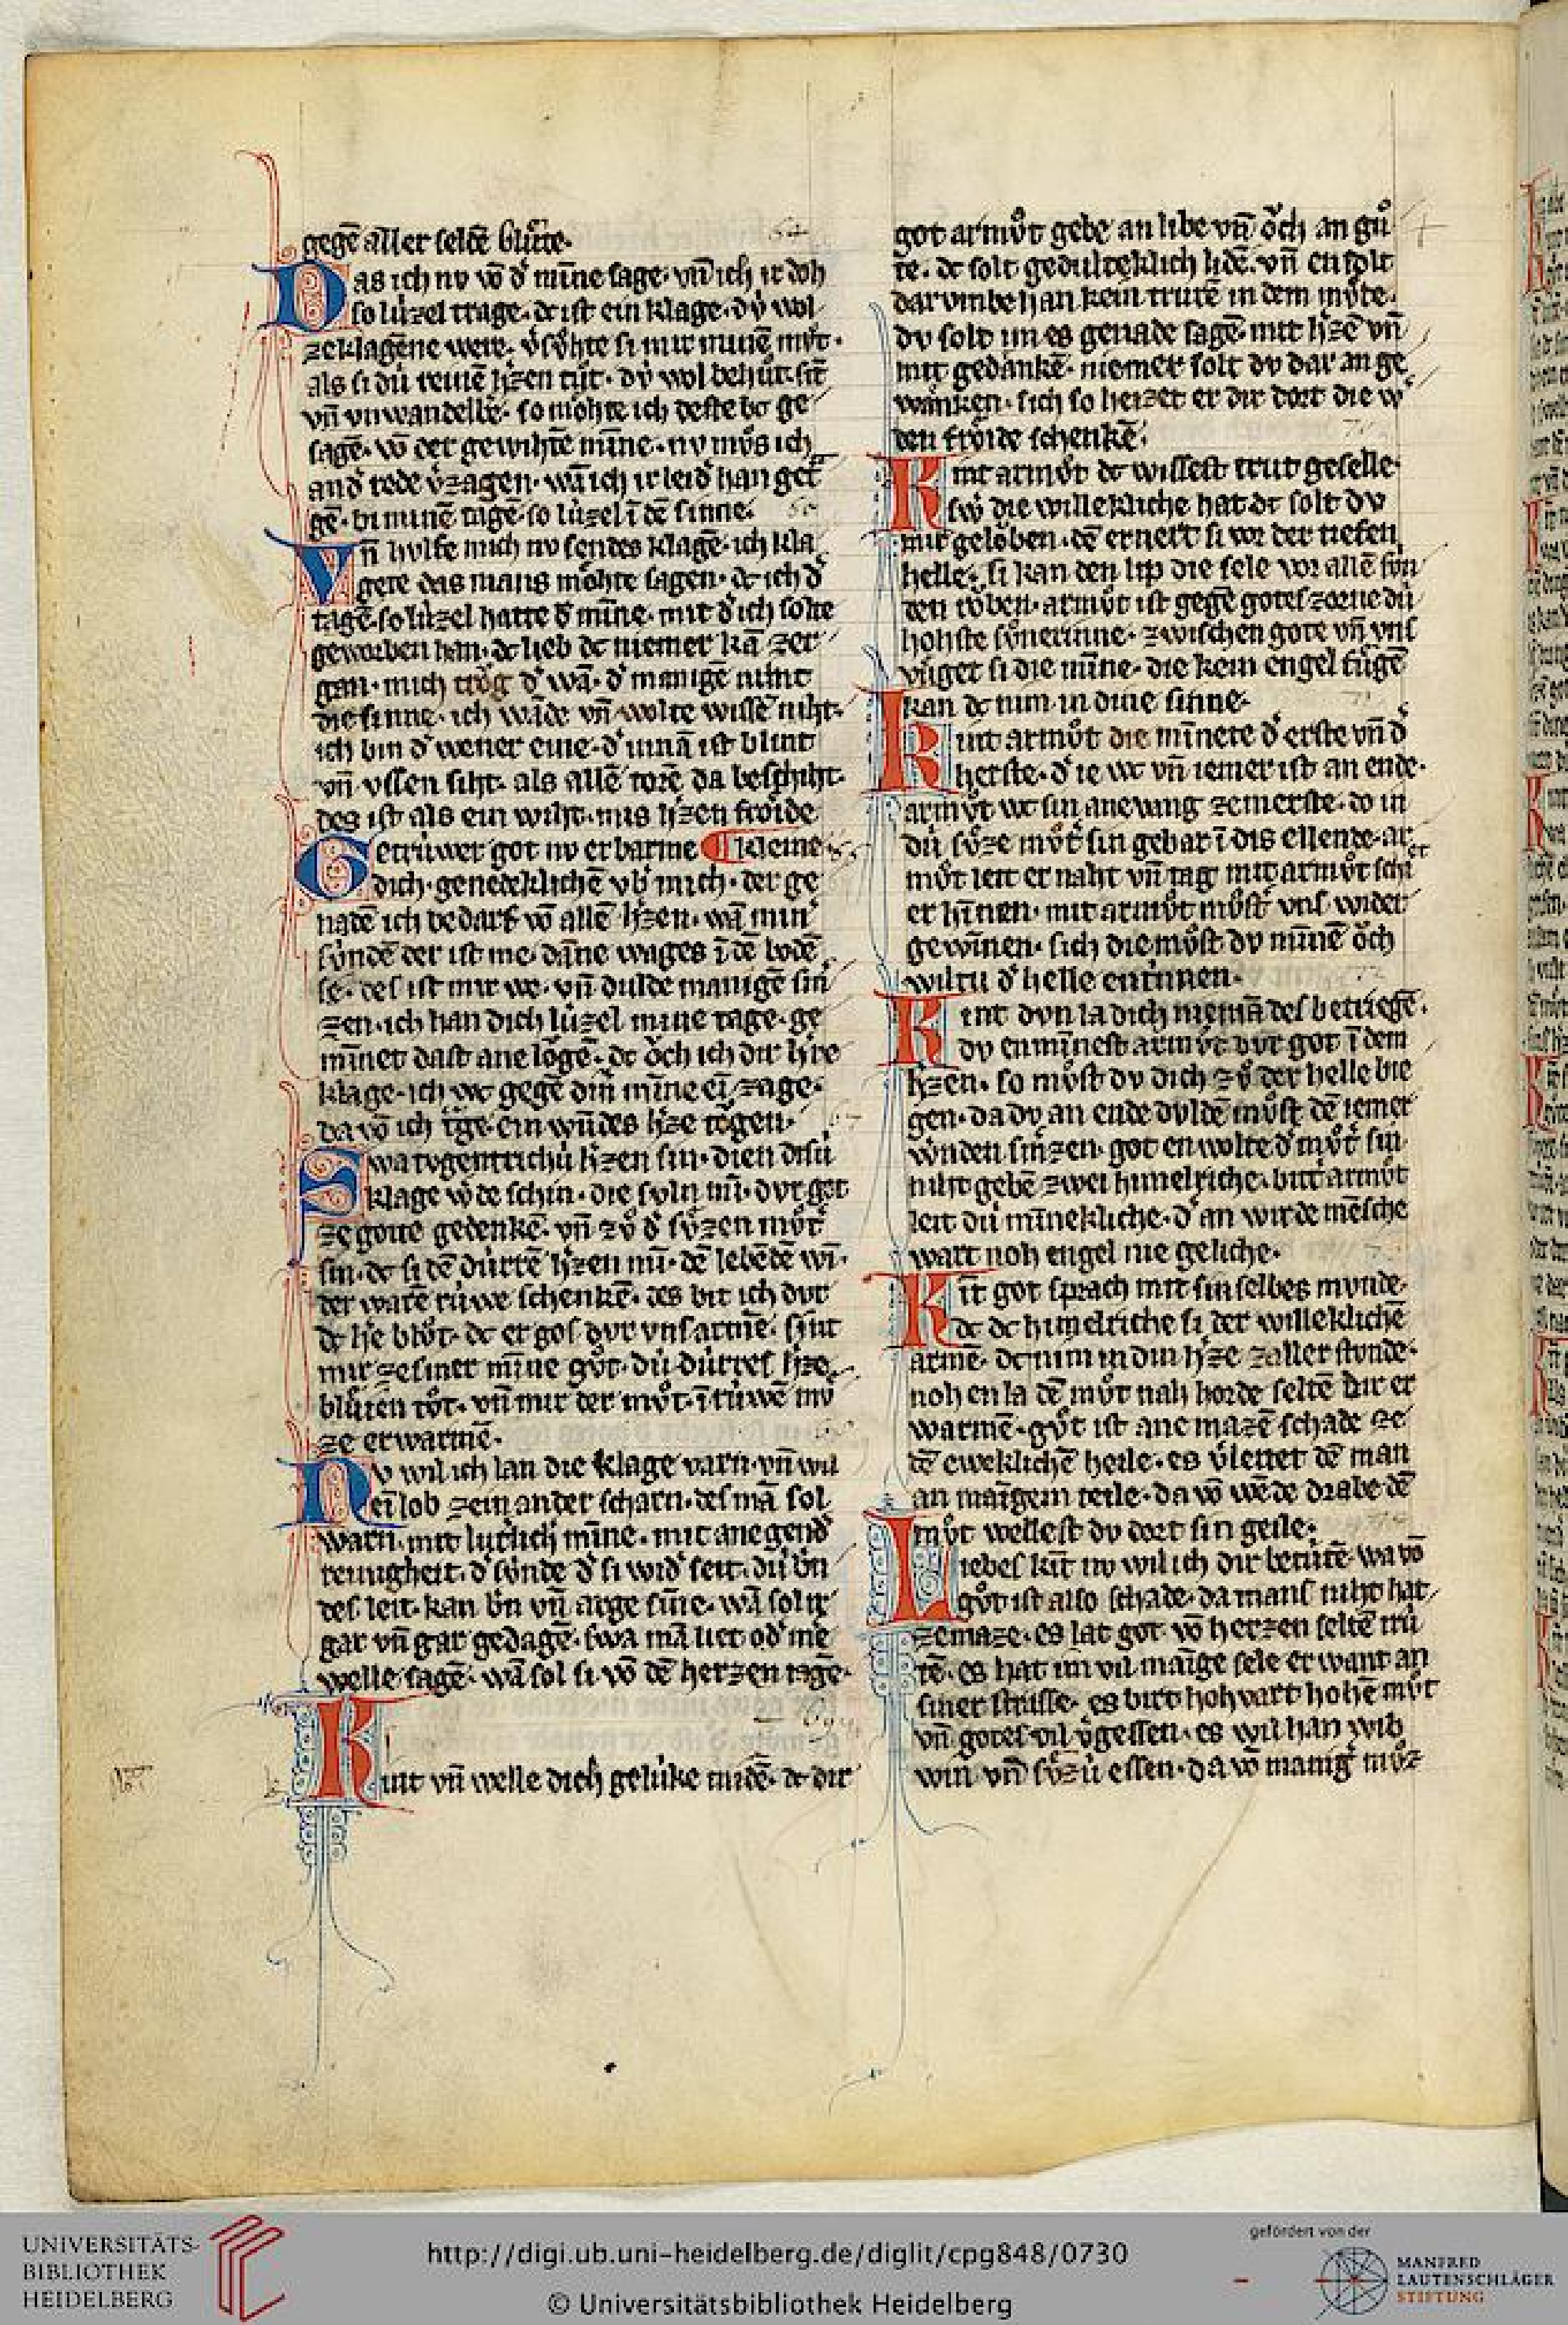 gegē aller seldē blůte.
Das ich nv vō d' mīne sage. vn̄ ich ir doh
so lúzel trage. dc ist ein klage. dú wol
zeklagēne were. v'sohte si mir minē můt.
als si dú reinē h'zen tůt. dú wol behůt sīt
vn̄ vnwandelbe. so mohte ich deste bc ge
sagē. vō der gewihtē mīne. nv můs ich
and' rede v'zagen. wā ich ir leid' han get
gē. bi minē tagē so lúzel ī dē sinne.
Vn̄ hvlfe mich nv sendes klagē. ich kla
gete das mans mohte sagen. dc ich d'
tagē. so lúzel hatte d' mīne. mit d' ich solte
geworben han. dc lieb dc niemer kā zer
gan. mich trǒg d' wā. d' manigē nimt
die sinne. ich wāde vn̄ wolte wissē niht.
ich bin d' wener eine. d' innā ist blint
vn̄ vssen siht. als allē torē da beschiht.
des ist als ein wiht. mis h'zen frǒide
Getrúwer got nv erbarme ¶ kleine.
dich. genedeklichē vb' mich. der ge
nadē ich bedarf vō allē h'zen. wā min
súndē der ist me. dāne wages ī dē bodē
se. des ist mir we. vn̄ dulde manigē sm'
zen. ich han dich lúzel mine tage. ge
mīnet dast ane lǒgē. dc ǒch ich dir h're
klage. ich wc gegē dir mīne eī zage.
da vō ich trage ein wūdes h'ze tǒgen.
Swa tvgentrichú h'zen sin. dien disú
klage w'de schin. die svln mī. dvr got
ze gote gedenkē. vn̄ zů d' sůzen můt'
sin. dc si dē dúrrē h'zen mī. dē lebēdē wī.
der ware rúwe schenkē. des bit ich dvr
dc h'e blůt. dc er gos dvr vns armē. sint
mir ze siner mīne gůt. dú dúrres h'ze
blůien tůt. vn̄ mir der můt. ī rúwē mv
ze erwarmē.
Nv wil ich lan die klage varn. vn̄ wil
ei lob zein ander scharn. des mā sol
warn. mit lutlich mīne. mit ane gend'
reinigheit. d' súnde d' si wid' seit. dú bn
des leit. kan bn vn̄ arge sīne. wā sol ir
gar vn̄ gar gedagē. swa mā liet od' me
welle sagē. wā sol si vō dē herzen iagē.
Kint vn̄ welle dich gelúke midē. dc dir
got armůt gebe an libe vn̄ ǒch an gů
te. dc solt gedulteklich lidē. vn̄ ensolt
darvmbe han kein trurē in dem můte.
dv solt im es genade sagē. mit h'zē vn̄
mit gedankē. niemer solt dv dar an ge
wanken. sich so heizet er dir dort die w'
den frǒide schenkē.
Kint armůt dc wissest trut geselle.
sw' die willekliche hat dc solt dv
mir gelǒben. dē ernert si vor der tiefen
helle. si kan den lip die sele vor allē sún
den rǒben. armůt ist gegē gotes zorne dú
hohste sůnerinne. zwischen gote vn̄ vns
vůget si die mīne. die kein engel fůgē
kan dc nim in dine sinne.
Kint armůt die mīnete d' erste vn̄ d'
herste. d' ie wc vn̄ iemer ist an ende.
armůt wc sin anevang zemerste. do in
dú sůze můt' sin gebar ī dis ellende. ar
můt leit er naht vn̄ tag mit armůt schi
et er hīnen. mit armůt můst' vns wider
gewīnen. sich die můst dv mīnē ǒch
wiltu d' helle entrinnen.
Kint dvn la dich niemā des betriegē.
dv enmīnest armůt dvr got ī dem
h'zen. so můst dv dich zů der helle bie
gen. da dv an ende dvldē můst dē iemer
w'nden sm'zen. got enwolte d' můt' sin
niht gebē zwei himelriche. bitt' armůt
leit dú mīnekliche. d' an wirde mēsche
wart noh engel nie geliche.
Kīt got sprach mit sin selbes mvnde.
dc dc himelriche si der willeklichē
armē. dc nim in din h'ze zaller stvnde.
noh en la dē můt nah horde seltē dir er
warmē. gůt ist ane mazē schade ze
dē eweklichē heile. es v'leitet dē man
an mangem teile. da vō w'de drabe dē
můt wellest dv dort sin geile.
Liebes kīt nv wil ich dir betútē. wa vō
gůt ist also schade. da mans niht hat
zemaze. es lat got vō herzen seltē trú
tē. es hat im vil manige sele erwant an
siner strasse. es birt hohvart hohē můt
vn̄ gotes vil v'gessen. es wil han wib
win vn̄ sůzú essen. da vō manig' můz
UNIVERSITÄTS-
BIBLIOTHEK
HEIDELBERG
http://digi.ub.uni-heidelberg.de/diglit/cpg848/0730
© Universitätsbibliothek Heidelberg
gefördert von der
MANFRED
LAUTENSCHLÄGER
STIFTUNG